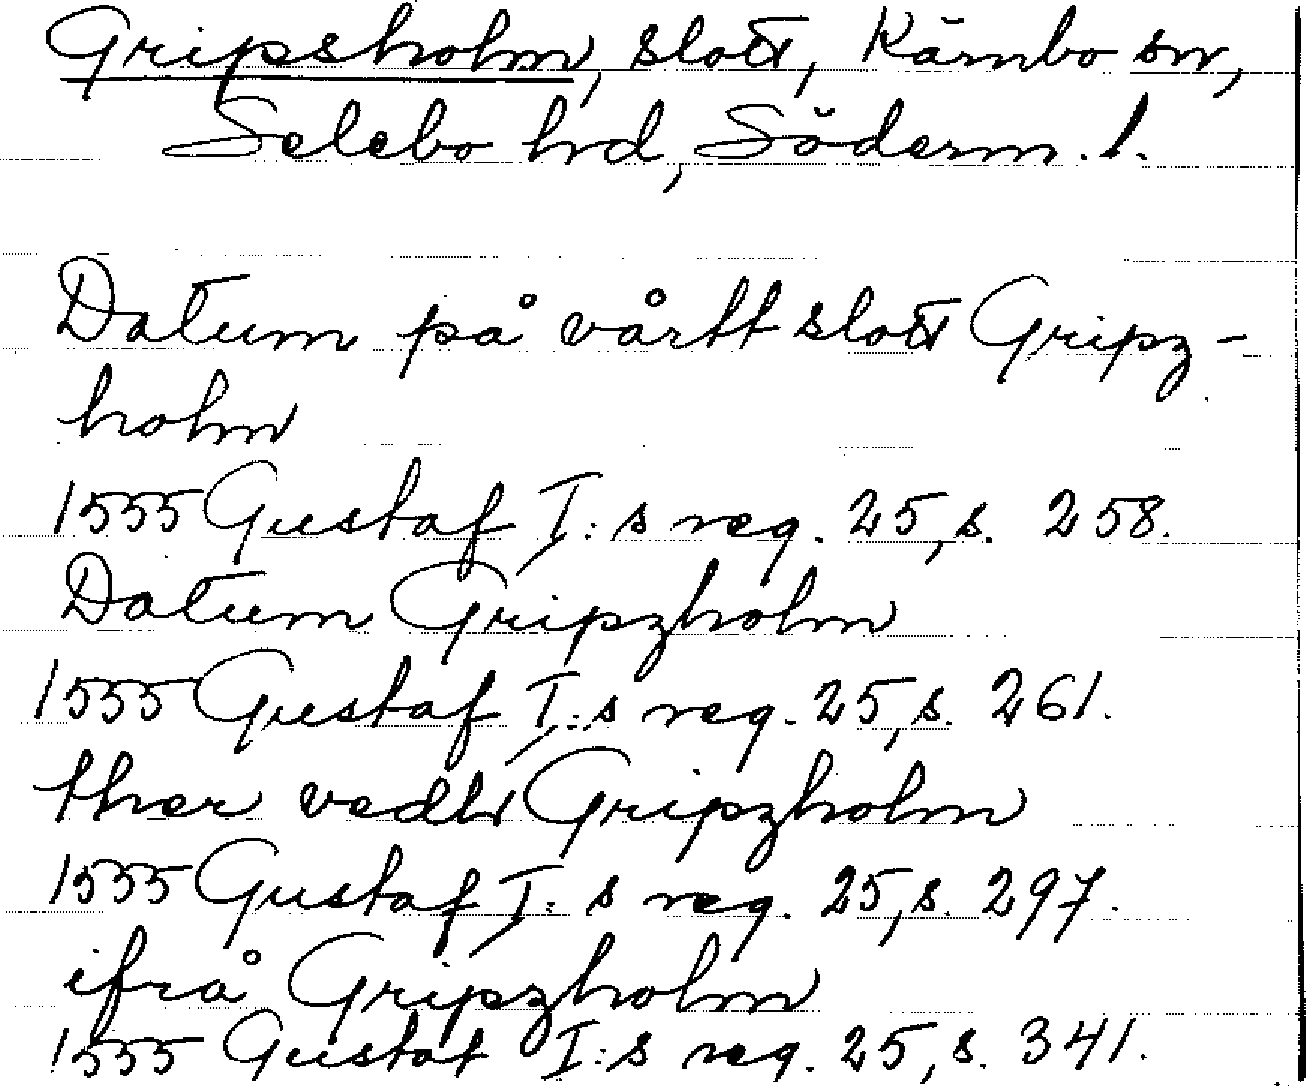 Gripsholm, slott, Kärnbo sn,
Selebo hrd, Söderm. l.
Datum på vårtt slott Gripz-
holm
1555 Gustaf I:s reg. 25, s. 258.
Datum Gripzholm
1555 Gustaf I:s reg. 25, s. 261.
ther vedh Gripzholm
1555 Gustaf I:s reg. 25, s. 297.
ifrå Gripzholm
1555 Gustaf I:s reg. 25, s. 341.